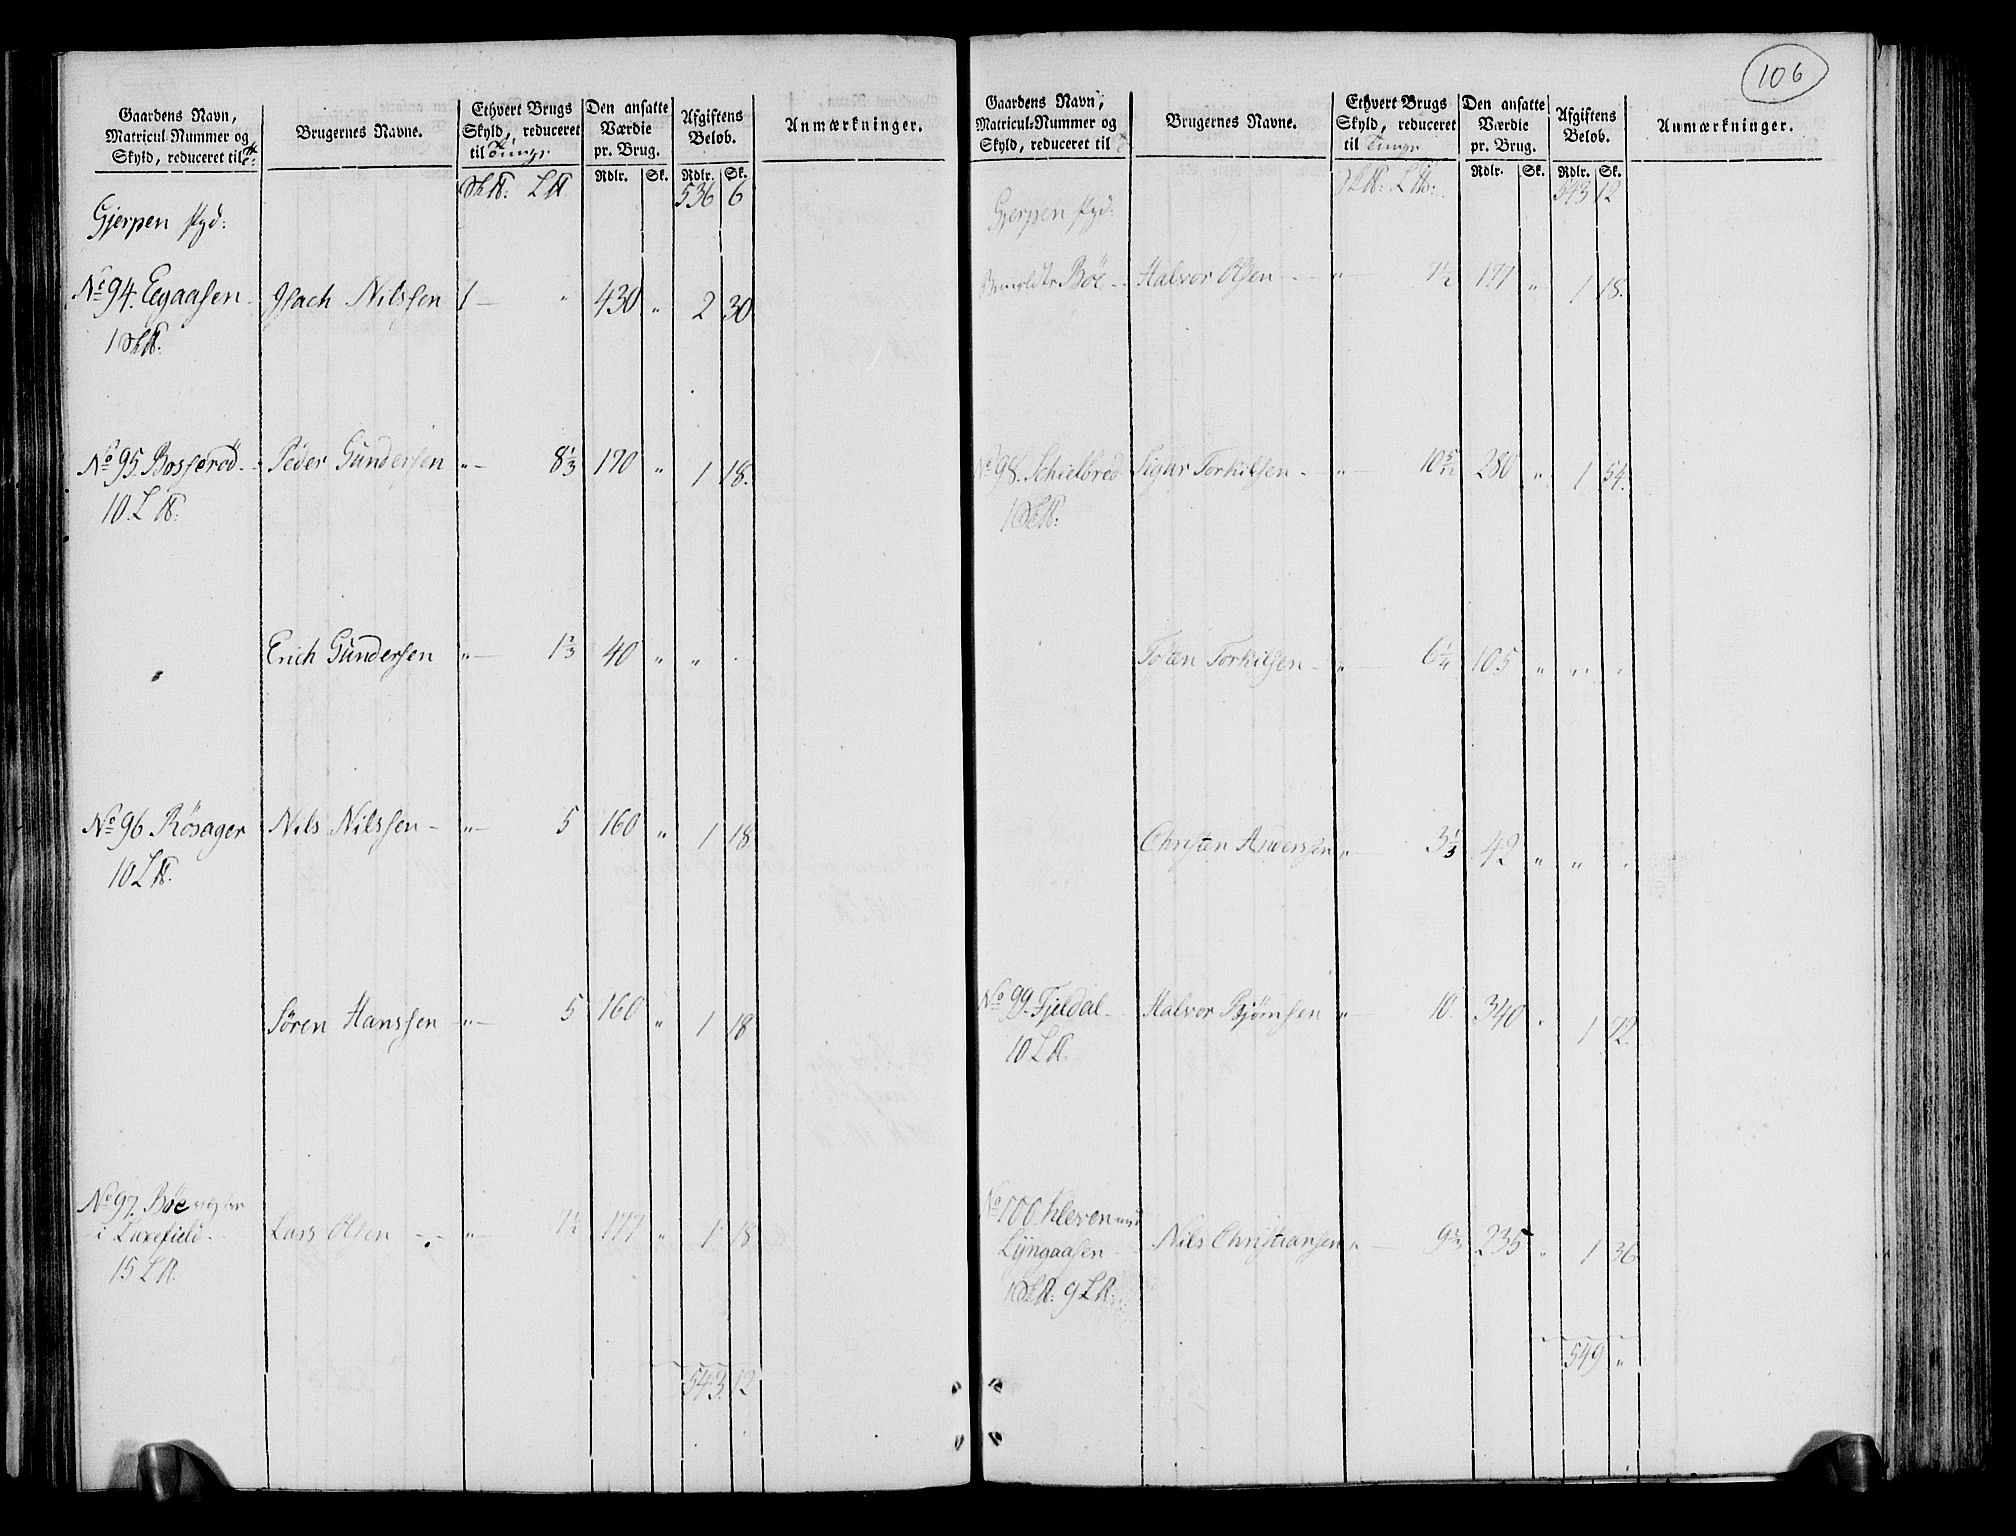 106
Gaardens Navn, Matricul-Nummer og Skyld, reduceret til
Brugernes Navne.
Ethvert Brugs Skyld, reduceret til Tunge
Den ansatte Værdie pr. Brug.
Afgiftens Beløb.
Anmærkninger.
Rdlr. Sk. Rdlr. Sk.
Gjerpen 536 6
No 94. Egaasen Isach Nilssen 1 " 430 " 2 30.
1
No 95. Bosserød Peder Gundersen " 8 1/3 170 " 1 18.
10. L
Erich Gundersen " 1 2/3 40 " "
No 96 Rösager Nils Nilssen " 5 160 " 1 18
10 L
Sören Hanssen " 5 160 " 1 18
No 97. Böe
i Luxefield Lars Olsen " 7 1/2 177 " 1 18
15 L
543. 12
Gaardens Navn, Matricul-Nummer og Skyld, reduceret til
Brugernes Navne.
Ethvert Brugs Skyld, reduceret til Tunge
Den ansatte Værdie pr. Brug.
Afgiftens Beløb.
Anmærkninger.
Rdlr. Sk. Rdlr. Sk.
Gjerpen 543 12
Böe Halvor Olsen " 7 1/2 177 " 1 18.
No 98. Schielbred Sigur Torkilsen " 10 5/12 280 " 1 54.
1
Torkilsen " 6 1/4 105 " "
Christen Anderssen " 3 1/3 42 " "
No 99. Fjeldal Halvor Bjørnsen " 10. 340 " 1 72.
10 L
No 100. Kleven med
Lyngaasen Nils Christiansen " 9 2/3 235 " 1 36
1 9 L
549 "